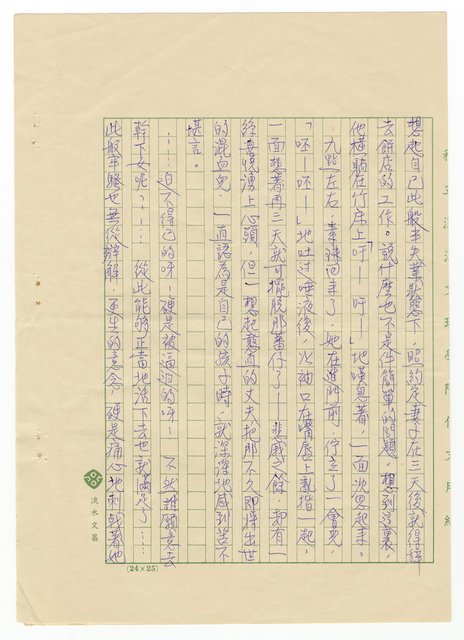 想起自己此般半失業狀態下，照約定妻子在三天後就得辭
去餅店的工作。說什麼也不是件簡單的問題，想到這裏，
他橫躺在竹床上「吁──吁──」地嘆息着，一面沈思起來。
九點左右，素珠回來了，她在進門前，佇立了一會兒，
「呸──呸──」地吐过唾液後，以袖口在嘴唇上亂揩一起，
一面想着再三天就可擺脫那葉仔了──悲戚之餘，却有一
絲喜悅湧上心頭，但一想起憨直的丈夫，把那不久即將出世
的混血兒，一直認為是自己的孩子時，就深深地感到苦不
堪言。
……迫不得已的呀──硬是被逼迫的呀──不然誰願意去
幹下女呢？……從此能够正當地活下去也就滿足了……
此般牢騷也無從辯解，更生的意念，硬是痛心地刺戟着她
淡水文昌
(24×25)